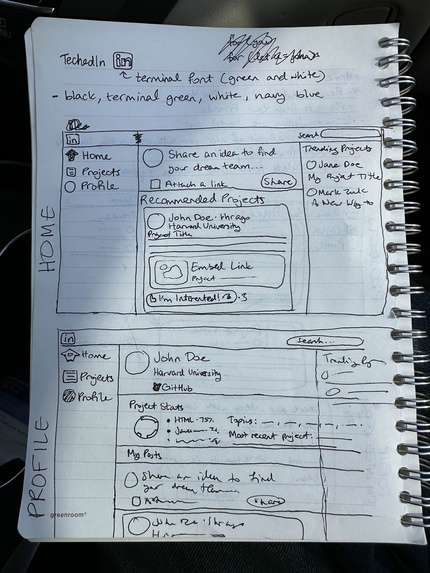 TechedIn in
terminal font (green and white)
- black, terminal green, white, navy blue
HOME
in
Search
Home
Projects
Profile
Share an idea to find
your dream team...
Attach a link
Share
Recommended Projects
John Doe · 1hr ago
Harvard University
Project Title
Embed Link
Project
I'm Interested!
· 3
Trending Projects
Jane Doe
My Project Title
Mark Zuck
A New Way to
PROFILE
in
Search...
Home
Projects
Profile
John Doe
Harvard University
GitHub
Project Stats
HTML · 75%
Topics:
Most recent project:
My Posts
Share an idea to find
your dream team
Share
John Doe · 1hr ago
Trending
greenroom